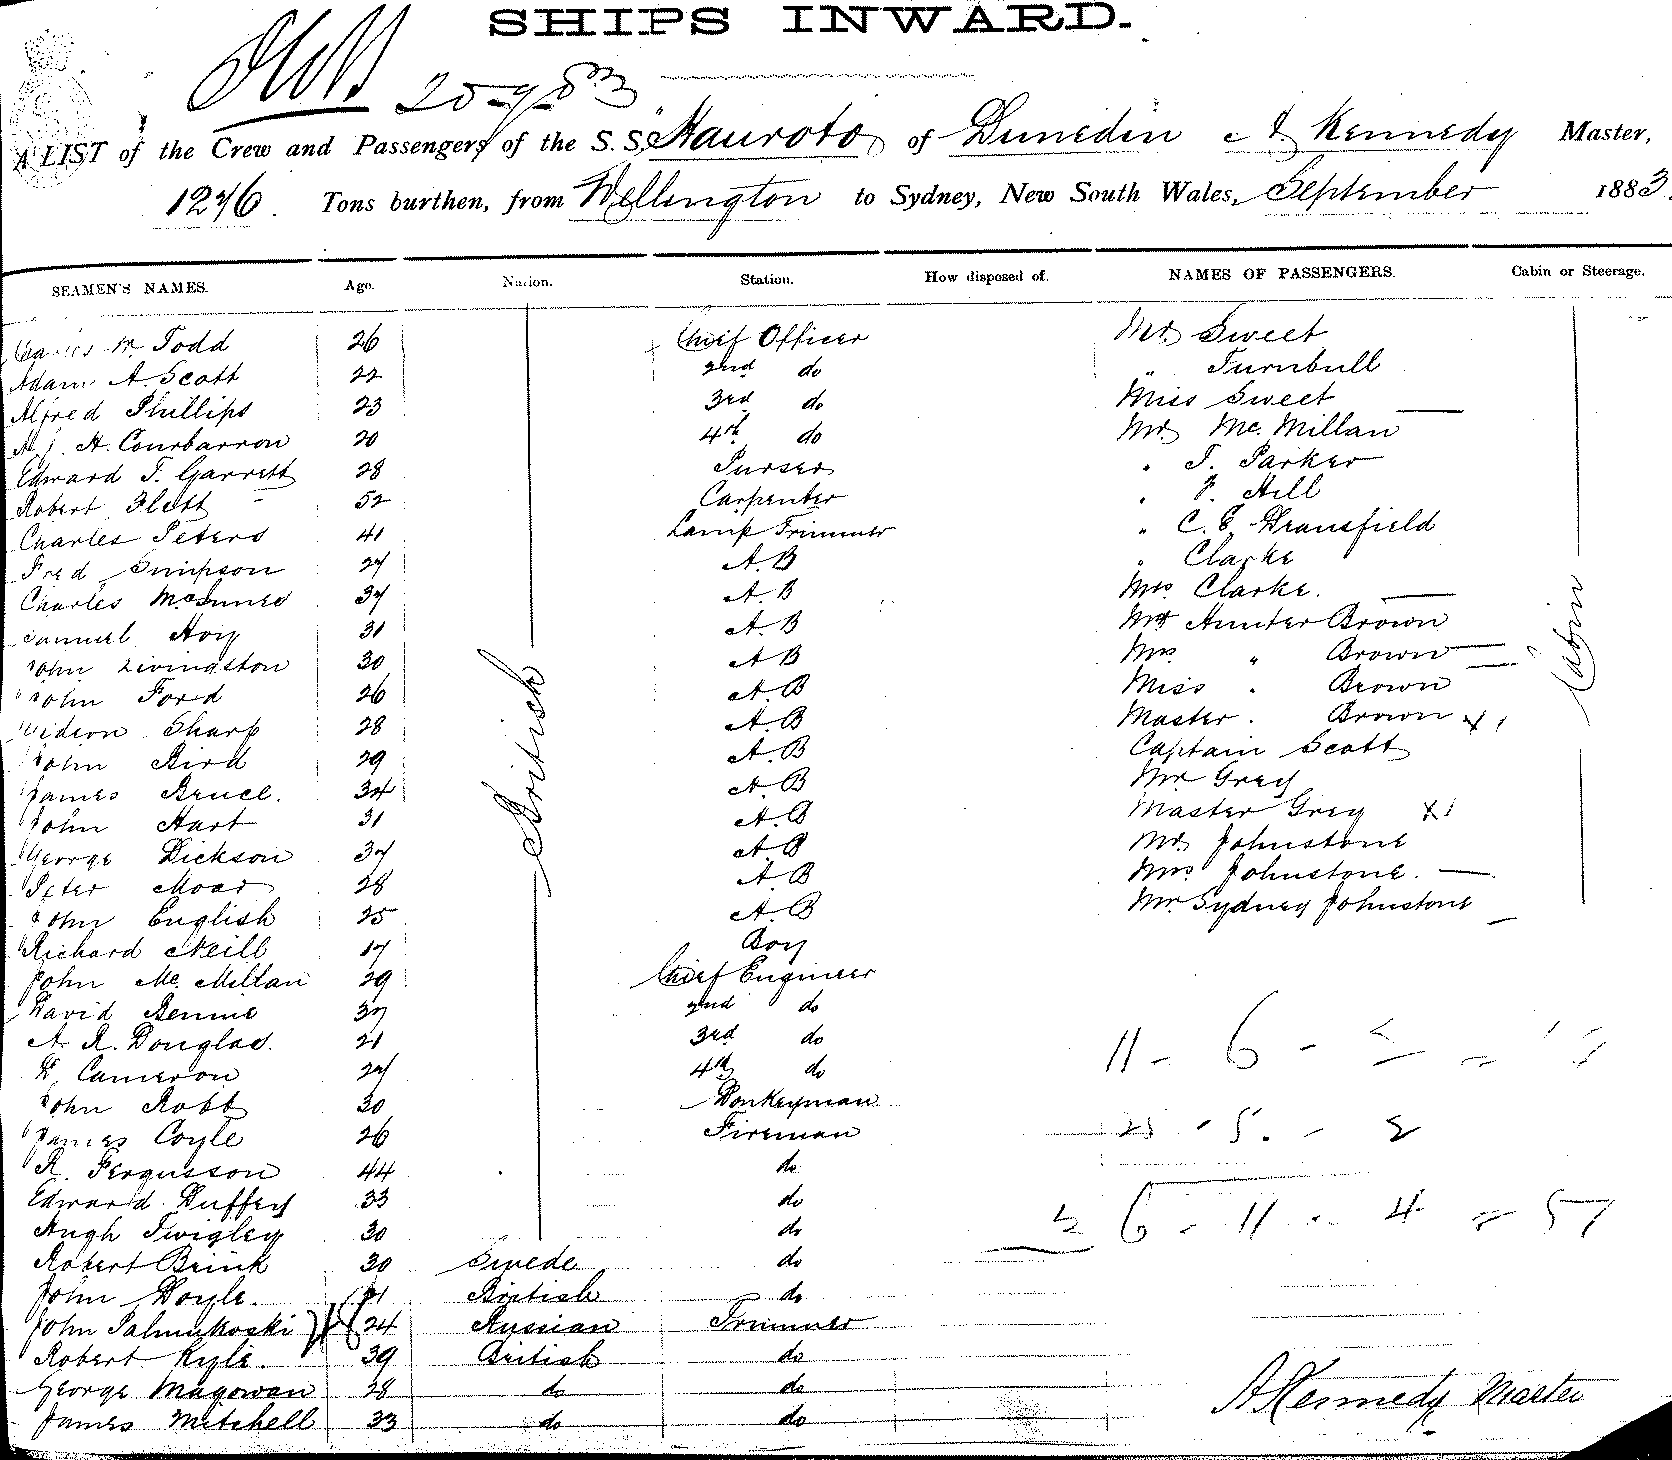 SHIPS INWARD.
A LIST of the Crew and Passengers of the S. S. Hauroto of Dunedin A Kennedy Master,
1276. Tons burthen, from Wellington to Sydney, New South Wales, September 1883.
SEAMEN'S NAMES. Age. Nation. Station. How disposed of. NAMES OF PASSENGERS. Cabin or Steerage.
Todd 26 British Chief Officer Mr. Sweet Cabin
Adam A. Scott 22 2nd do " Turnbull
Alfred Phillips 23 3rd do Miss Sweet
A. Courbarron 20 4th do Mr Mc. Millan
Edward T. Garrett 28 Purser " T. Parker
Robert Flett 52 Carpenter " Hill
Charles Peters 41 Lamp Trimmer " C. E. Dransfield
Fred Simpson 27 A. B " Clarke
Charles McInnes 37 A. B Mrs Clarke.
Samuel Hoy 31 A. B Mr Hunter Brown
John Livingston 30 A B Mrs " Brown
John Ford 26 A. B Miss " Brown
Gideon Sharp 28 A. B Master " Brown
John Bird 29 A. B Captain Scott
James Bruce. 34 A. B Mr Grey
John Hart 31 A. B Master Grey
George Dickson 37 A B Mr. Johnstone
Peter Moar 28 A B Mrs Johnstone.
John English 25 A. B Mr Sydney Johnstone
Richard Neill 17 Boy
John Mc. Millan 29 Chief Engineer
David Rennie 37 2nd do
A. R. Douglas. 21 3rd do
D. Cameron 27 4th do
John Robb 30 Donkeyman
James Coyle 26 Fireman
R. Fergusson 44 do
Edward Duffey 33 do
Hugh Twigley 30 do
Robert Brink 30 Swede do
John Doyle. 21 British do
John 24 Russian Trimmer
Robert Kyle. 39 British do
George Magowan 28 do do
James Mitchell 33 do do
A Kennedy Master